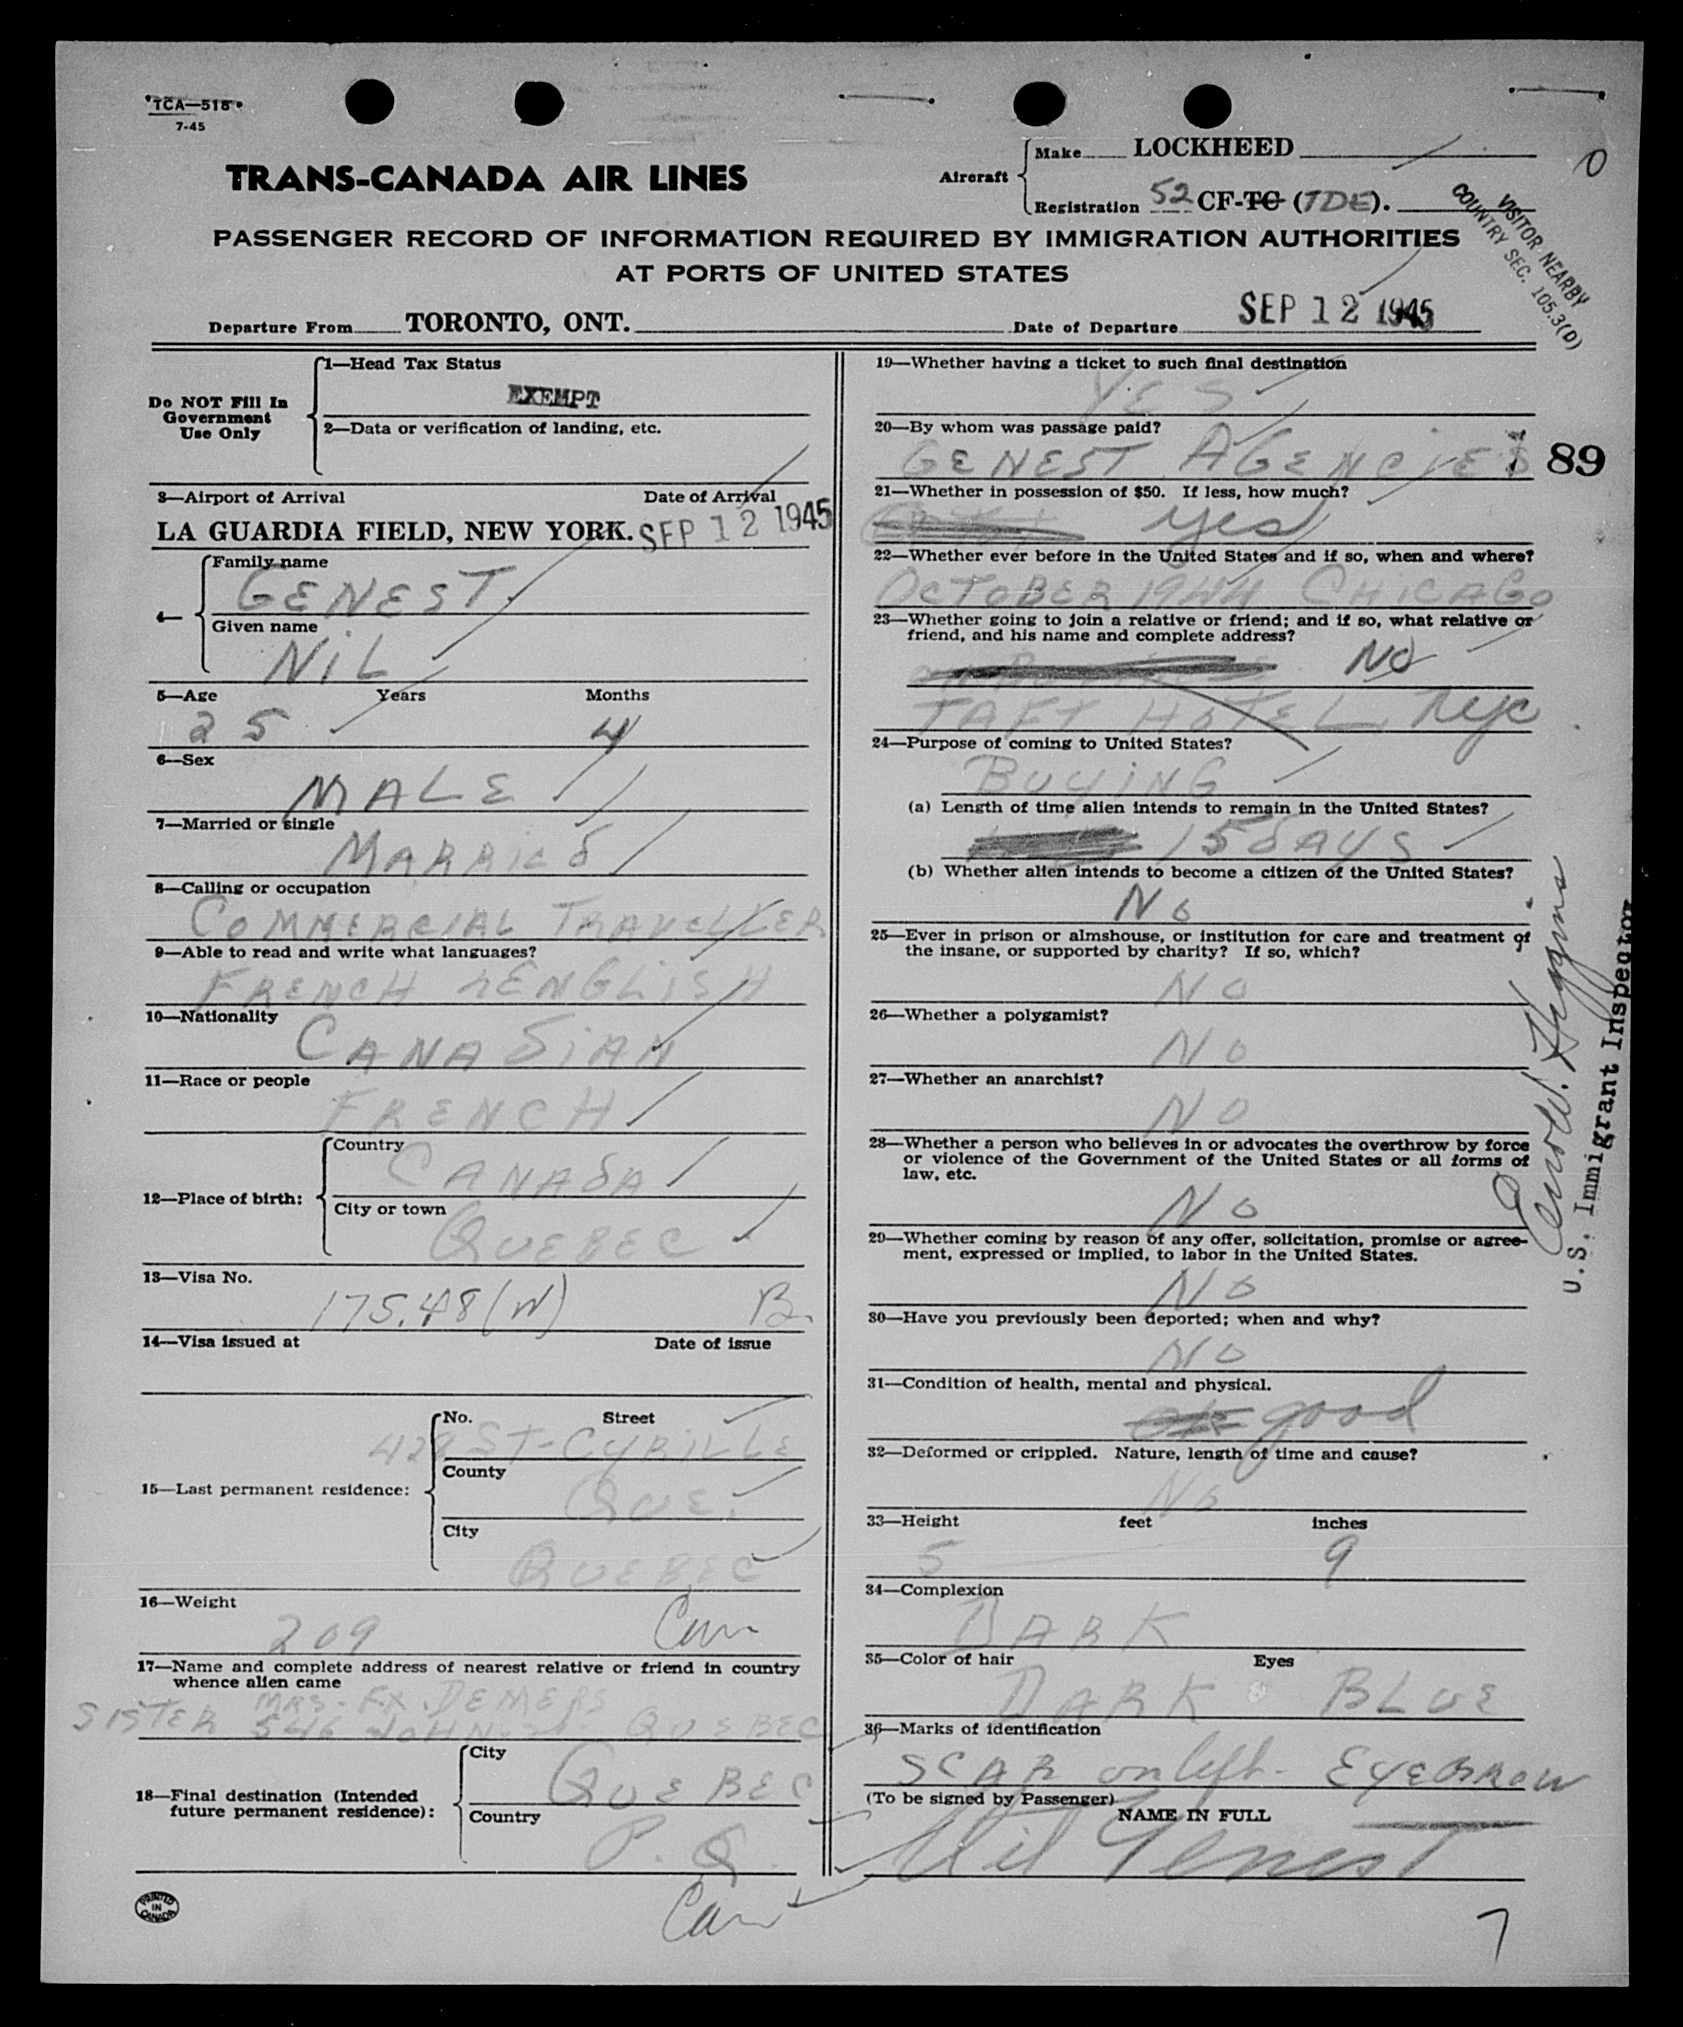 TCA—518
7-45
TRANS-CANADA AIR LINES
Aircraft
Make LOCKHEED
Registration 52 CF-TC (TDE).
0
VISITOR NEARBY
COUNTRY SEC. 105.3(D)
PASSENGER RECORD OF INFORMATION REQUIRED BY IMMIGRATION AUTHORITIES
AT PORTS OF UNITED STATES
Departure From TORONTO, ONT. Date of Departure SEP 12 1945
Do NOT Fill In
Government
Use Only
1—Head Tax Status
EXEMPT
2—Data or verification of landing, etc.
3—Airport of Arrival Date of Arrival
LA GUARDIA FIELD, NEW YORK. SEP 12 1945
4—
Family name
GENEST.
Given name
NIL
5—Age Years Months
25 4
6—Sex
MALE
7—Married or single
MARRIED
8—Calling or occupation
COMMERCIAL TRAVELLER
9—Able to read and write what languages?
FRENCH & ENGLISH
10—Nationality
CANADIAN
11—Race or people
FRENCH
12—Place of birth:
Country
CANADA
City or town
QUEBEC
13—Visa No.
175.48(W) B.
14—Visa issued at Date of issue
15—Last permanent residence:
No. Street
428 ST-CYRILLE
County
QUE.
City
QUEBEC
16—Weight
209 Can
17—Name and complete address of nearest relative or friend in country
whence alien came
MRS. FX. DEMERS
SISTER 546 JOHN ST. QUEBEC
18—Final destination (Intended
future permanent residence):
City
QUEBEC
Country
P.Q.
Can
PRINTED
IN
CANADA
19—Whether having a ticket to such final destination
YES
20—By whom was passage paid?
GENEST AGENCIES
89
21—Whether in possession of $50. If less, how much?
yes
22—Whether ever before in the United States and if so, when and where?
OCTOBER 1944 CHICAGO
23—Whether going to join a relative or friend; and if so, what relative or
friend, and his name and complete address?
NO
TAFT HOTEL, NYC
24—Purpose of coming to United States?
BUYING
(a) Length of time alien intends to remain in the United States?
15 DAYS
(b) Whether alien intends to become a citizen of the United States?
NO
25—Ever in prison or almshouse, or institution for care and treatment of
the insane, or supported by charity? If so, which?
NO
26—Whether a polygamist?
NO
27—Whether an anarchist?
NO
28—Whether a person who believes in or advocates the overthrow by force
or violence of the Government of the United States or all forms of
law, etc.
NO
29—Whether coming by reason of any offer, solicitation, promise or agree-
ment, expressed or implied, to labor in the United States.
NO
30—Have you previously been deported; when and why?
NO
31—Condition of health, mental and physical.
good
32—Deformed or crippled. Nature, length of time and cause?
NO
33—Height feet inches
5 9
34—Complexion
DARK
35—Color of hair Eyes
DARK BLUE
36—Marks of identification
SCAR on left EYEBROW
(To be signed by Passenger)
NAME IN FULL
Nil Genest
7
Higgins
U.S. Immigrant Inspector